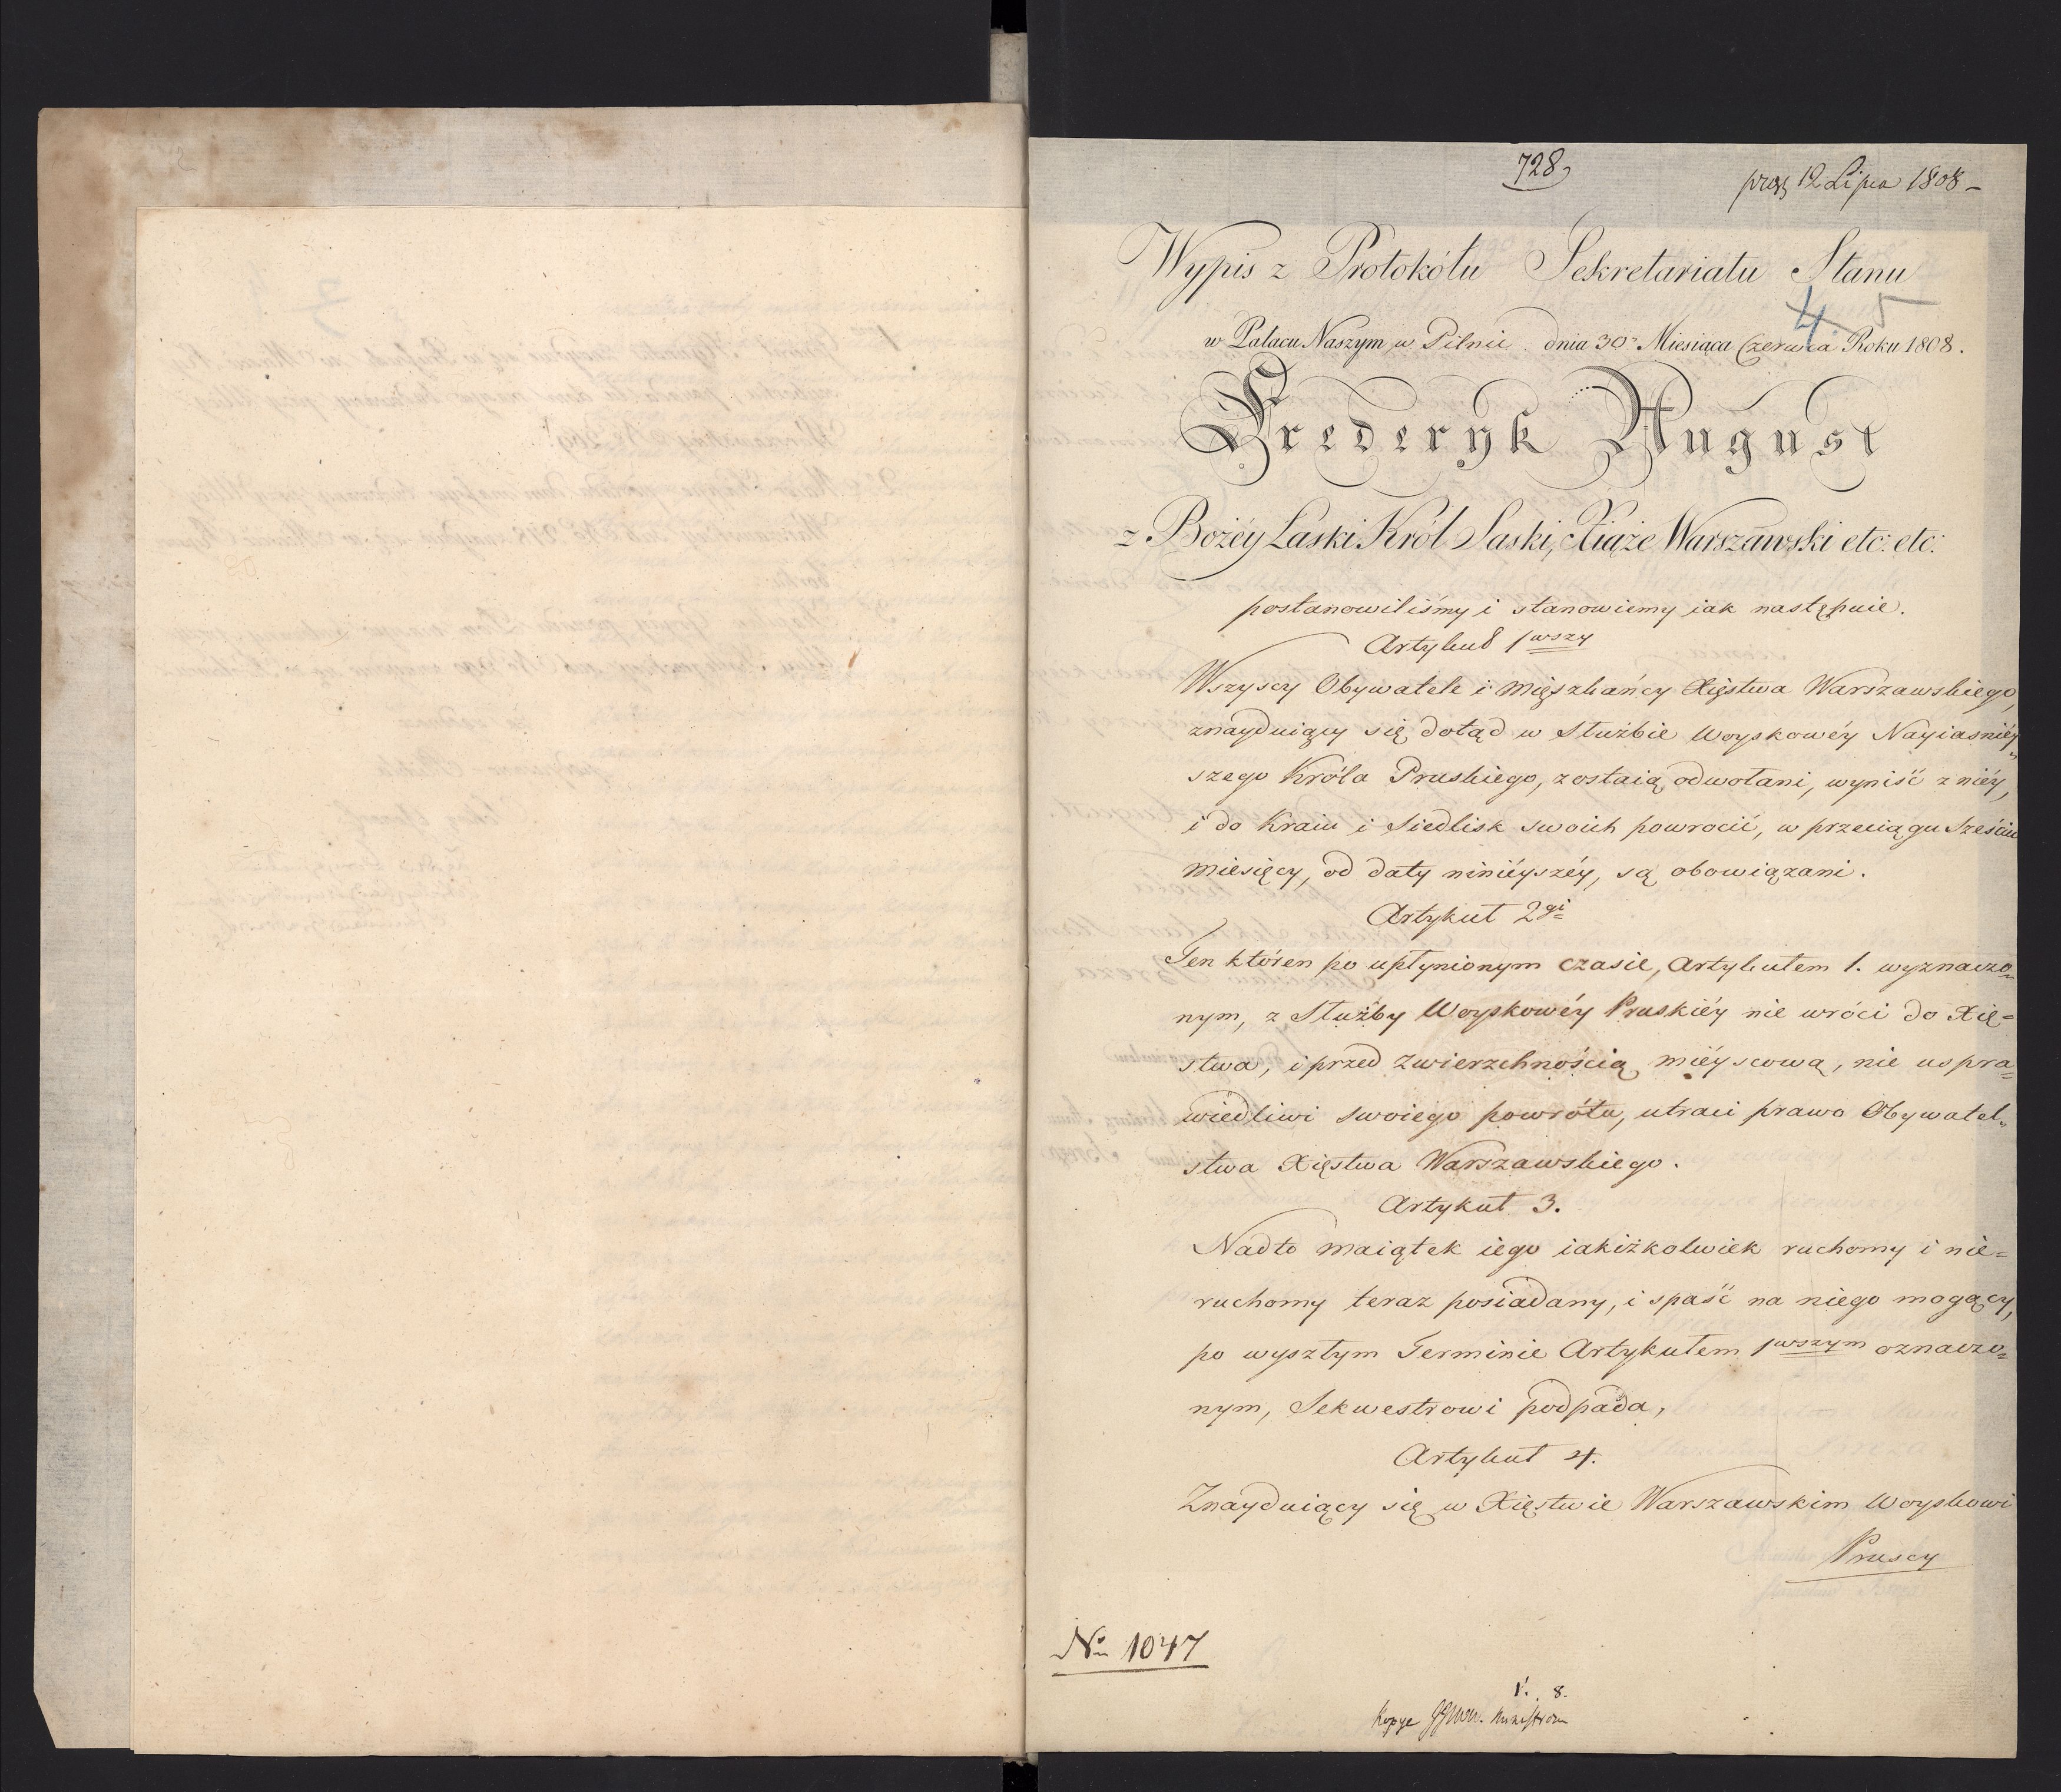 728
prez 12 Lipca 1808 –
Wypis z Protokółu Sekretariatu Stanu
4 5
w Pałacu Naszym w Pilnie dnia 30. Miesiąca Czerwca Roku 1808.
Fryderyk August
z Bożéy Łaski Król Saski, Xiąże Warszawski etc: etc:
postanowiliśmy i stanowiemy iak następuie.
Artykuł 1wszy
Wszyscy Obywatele i Mięszkańcy Xięstwa Warszawskiego,
znayduiący się dotąd w Służbie Woyskowéy Nayiasniéy„
szego Króla Pruskiego, zostaią odwołani, wyniść z niéy,
i do Kraiu i Siedlisk swoich powrocić, w przeciągu Sześciu
Miesięcy, od daty niniéyszéy, są obowiązani.
Artykuł 2gi
Ten któren po upłynionym czasie, Artykułem 1. wyznaczo=
nym, z Służby Woyskowéy Pruskiéy nie wróci do Xię=
stwa, i przed Zwierzchnością miéyscową, nie uspra=
wiedliwi swoiego powrótu, utraci prawo Obywatel„
stwa Xięstwa Warszawskiego.
Artykuł 3.
Nadto maiątek iego iakiżkolwiek ruchomy i nie=
ruchomy teraz posiadany, i spaść na niego mogący,
po wyszłym Terminie Artykułem 1wszym oznaczo=
nym, Sekwestrowi podpada,
Artykuł 4.
Znayduiący się w Xięstwie Warszawskim Woyskowi
Pruscy
No 1047
1. 8.
Kopye Ministrom